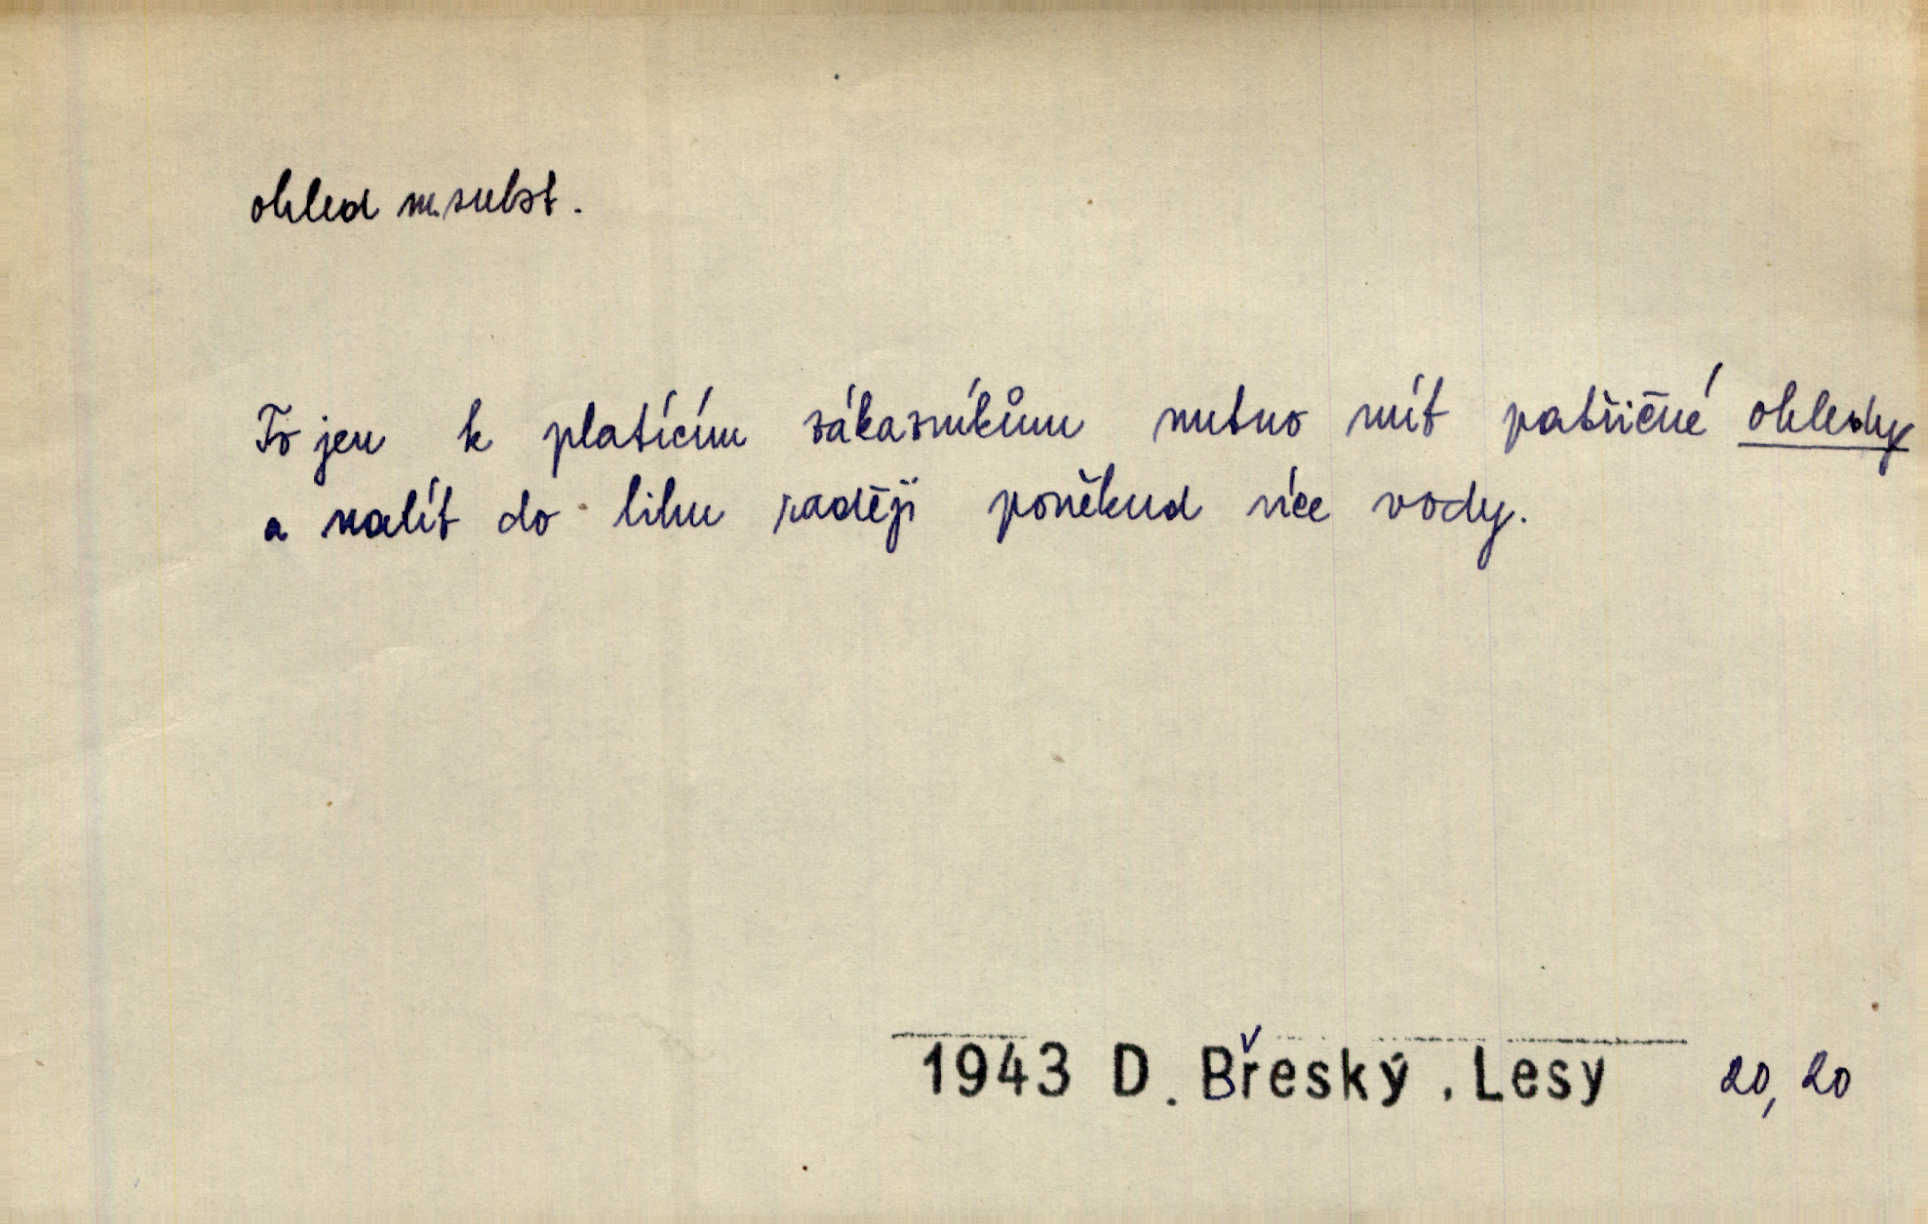 ohled m. subst.
To jen k platícím zákazníkům nutno mít patřičné ohledy
a nalít do lihu raději poněkud více vody.
1943 D. Břeský. Lesy 20, 20